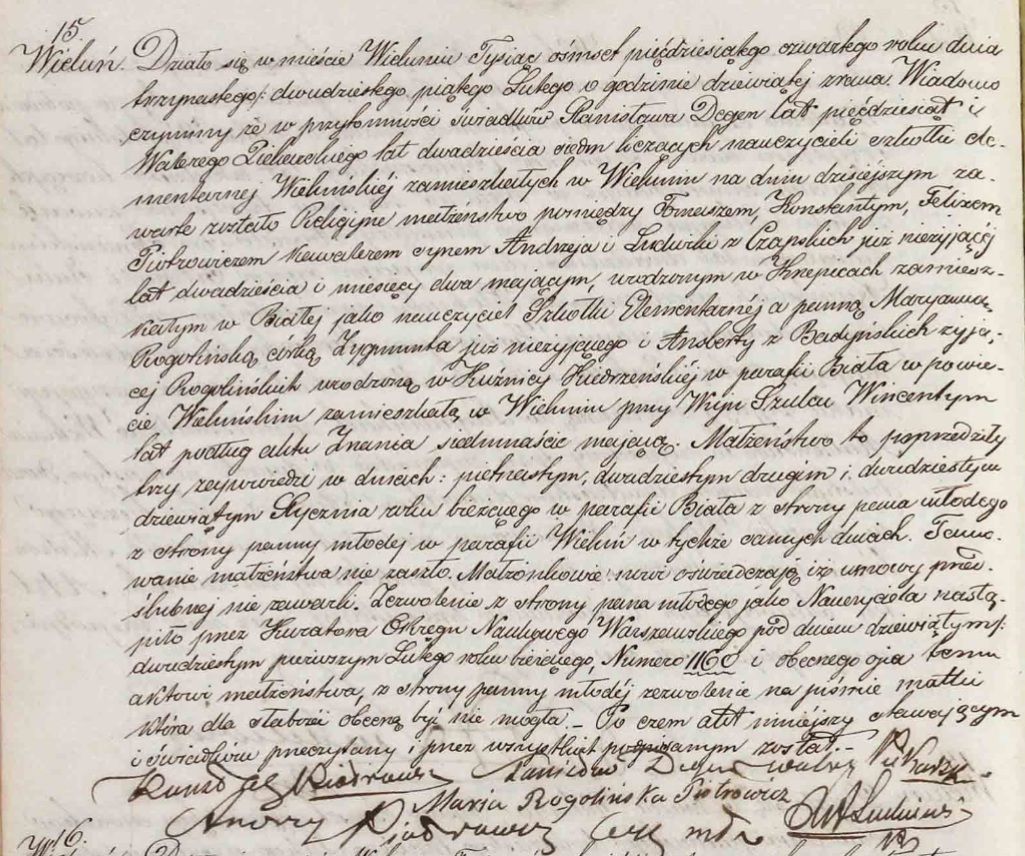 15.
Wieluń. Działo się w mieście Wieluniu Tysiąc ośmset pięćdziesiątego czwartego roku dnia
trzynastego/: dwudziestego piątego Lutego o godzinie dziewiątej zrana. Wiadomo
czynimy że w przytomności świadków Stanisława Degen lat pięćdziesiąt i
Walerego lat dwadzieścia siedm liczących nauczycieli szkółki ele-
mentarnej Wieluńskiéj zamieszkałych w Wieluniu na dniu dzisiejszym za-
warte zostało Religijne małżeństwo pomiędzy Tomaszem, Konstantym, Felixem
Piotrowiczem kawalerem synem Andrzeja i Ludwiki z Czapskich już nieżyjącéj
lat dwadzieścia i miesięcy dwa mającym, urodzonym w Krzepicach zamiesz-
kałym w Białej jako nauczyciel Szkółki Elementarnéj a panną Maryanną
Rogolińską córką Zygmunta już nieżyjącego i Ansberty z Badyńskich żyją-
cej Rogolińskich urodzoną w Kuźnicy Kiedrzeńskiéj w parafii Biała w powie-
cie Wieluńskim zamieszkałą w Wieluniu przy Wuju Szulcu Wincentym
lat podług aktu Znania siedmnaście mającą. Małżeństwo to poprzedziły
trzy zapowiedzi w dniach: piętnastym, dwudziestym drugim i dwudziestym
dziewiątym Stycznia roku bieżącego w parafii Biała z strony pana młodego
z strony panny młodej w parafii Wieluń w tychże samych dniach. Tamo-
wanie małżeństwa nie zaszło. Małżonkowie nowi oświadczają iż umowy przed-
ślubnej nie zawarli. Zezwolenie z strony pana młodego jako Nauczyciela nastą-
piło przez Kuratora Okręgu Naukowego Warszawskiego pod dniem dziewiątym/:
dwudziestym pierwszym Lutego roku bieżącego, Numero i obecnego ojca temu
aktowi małżeństwa, z strony panny młodéj zezwolenie na piśmie matki
która dla słabości obecną być nie mogła – Po czem akt niniejszy stawającym
i świadków przeczytany i przez wszystkich podpisanym został.-
Piotrowicz Stanisław Degen Walery
Maria Rogolińska Piotrowicz
Andrzej Piotrowicz
16.